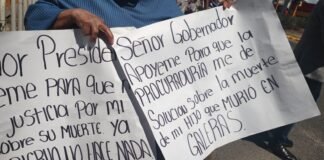 ñor Preside
eme PARA que A
JUSTICIA POR mi
obre su MUERTE YA
NO HACE NADA
Señor Gobernador
APoyeme PARA que la
PROCURADURIA me de
Solución sobre la muerte
de mi Hijo que MURIÓ EN
GALERAS.